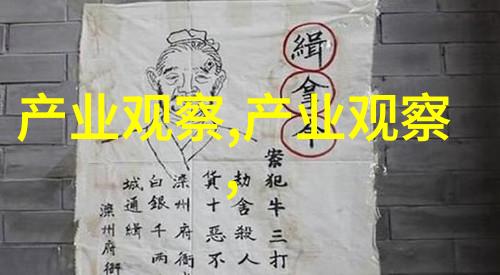 产业观察,产业观察
,
緝拿
案犯牛三打
劫舍殺人
貨十惡不
滦州府衙
白銀千两
城通緝
滦州府衙